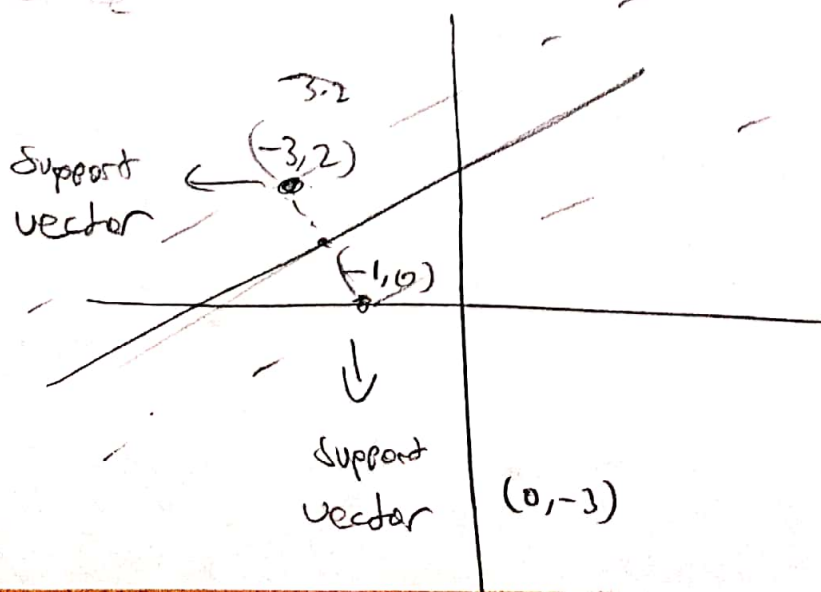 3.2
(-3, 2)
Support
vector
(-1, 0)
Support
vector
(0, -3)